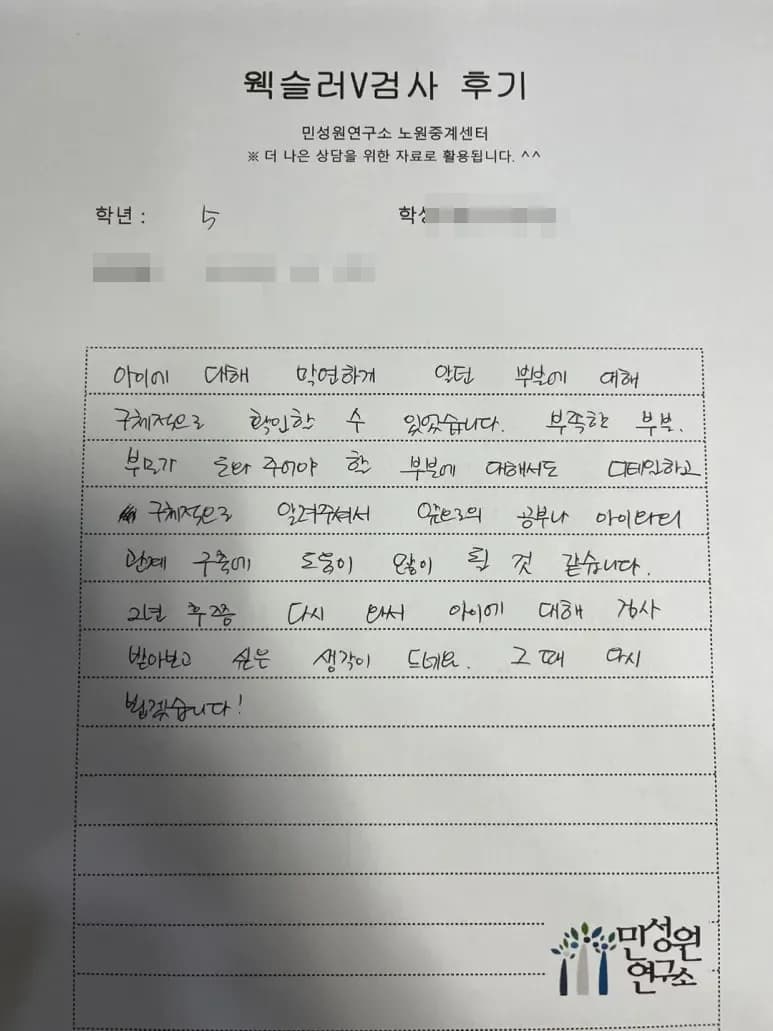 웩슬러V검사 후기
민성원연구소 노원중계센터
※ 더 나은 상담을 위한 자료로 활용됩니다. ^^
학년 : 5 학생
아이에 대해 막연하게 알던 부분에 대해
구체적으로 확인할 수 있었습니다. 부족한 부분.
부모가 도와 주어야 할 부분에 대해서도 디테일하고
구체적으로 알려주셔서 앞으로의 공부나 아이와의
관계 구축에 도움이 많이 될 것 같습니다.
2년 후쯤 다시 와서 아이에 대해 검사
받아보고 싶은 생각이 드네요. 그 때 다시
뵙겠습니다!
민성원
연구소